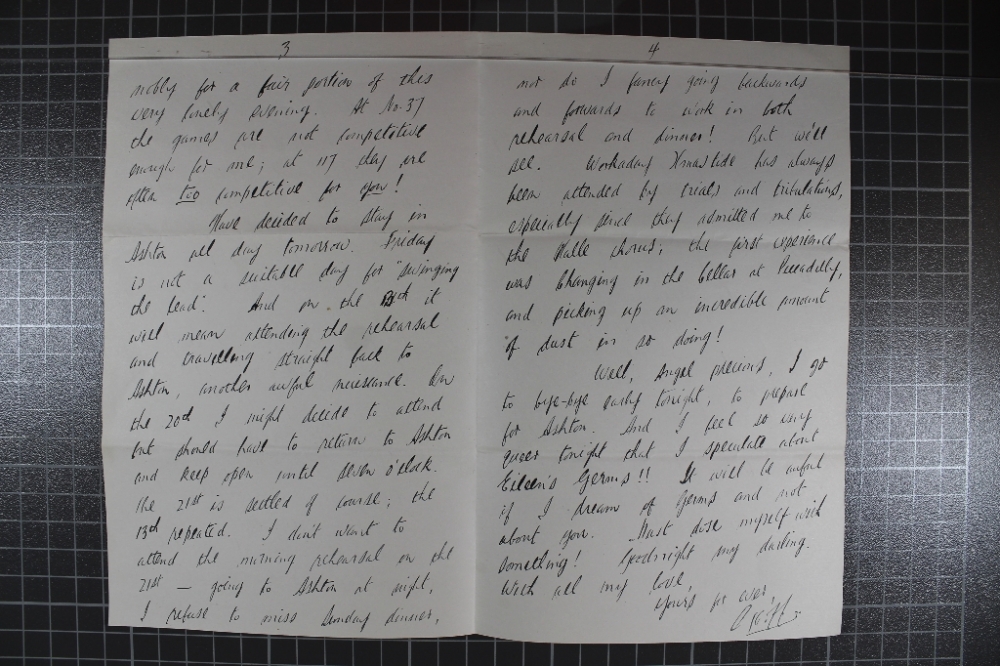 3
nobly for a fair portion of this
very lonely evening. At No. 37
the games are not competitive
enough for me; at 117 they are
often too competitive for you!
Have decided to stay in
Ashton all day tomorrow. Friday
is not a suitable day for "swinging
the lead". And on the it
will mean attending the rehearsal
and travelling straight back to
Ashton, another awful nuisance. On
the 20th I might decide to attend
but should have to return to Ashton
and keep open until seven o'clock.
The 21st is settled of course; the
13th repeated. I don't want to
attend the morning rehearsal on the
21st — going to Ashton at night,
I refuse to miss Sunday dinner,
4
nor do I fancy going backwards
and forwards to work in both
rehearsal and dinner! But we'll
see. Workaday Xmastide has always
been attended by trials and tribulations,
especially since they admitted me to
the Halle chorus; the first experience
was changing in the cellar at Piccadilly,
and picking up an incredible amount
of dust in so doing!
Well, Angel precious, I go
to bye-bye early tonight, to prepare
for Ashton. And I feel so very
queer tonight that I speculate about
Eileen's Germs!! It will be awful
if I dream of germs and not
about you. Must dose myself with
something! Goodnight my darling.
With all my love,
Yours for ever,